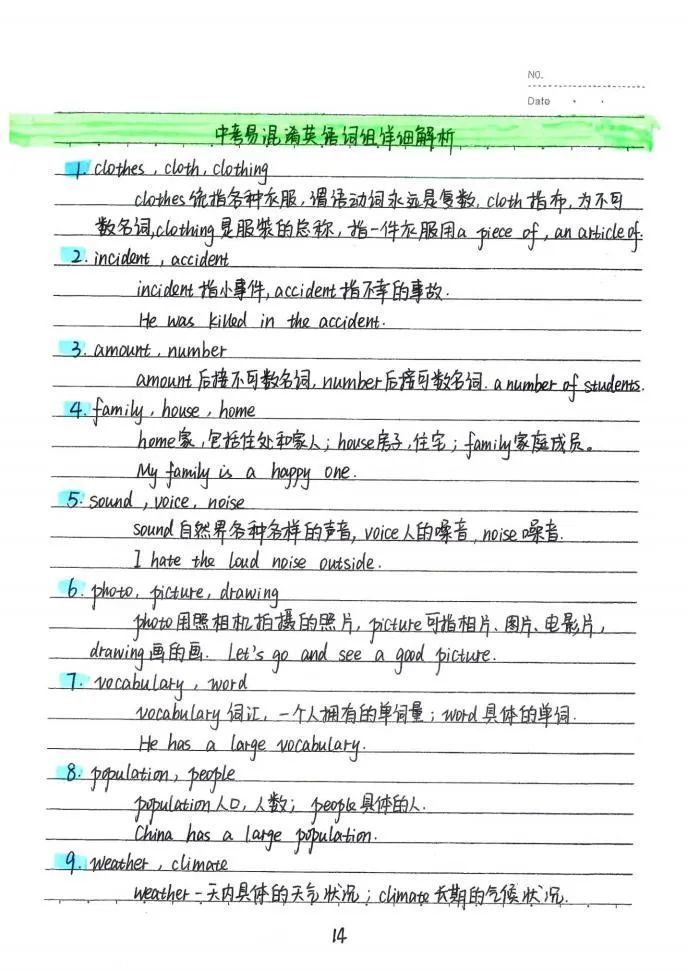 NO.
Date
中考易混淆英语词组详细解析
1. clothes, cloth, clothing
clothes 统指各种衣服, 谓语动词永远是复数, cloth 指布, 为不可
数名词, clothing 是服装的总称, 指一件衣服用 a piece of, an article of.
2. incident, accident
incident 指小事件, accident 指不幸的事故.
He was killed in the accident.
3. amount, number
amount 后接不可数名词, number 后接可数名词. a number of students.
4. family, house, home
home 家, 包括住处和家人; house 房子, 住宅; family 家庭成员。
My family is a happy one.
5. sound, voice, noise
sound 自然界各种各样的声音, voice 人的嗓音, noise 噪音.
I hate the loud noise outside.
6. photo, picture, drawing
photo 用照相机拍摄的照片, picture 可指相片、图片、电影片,
drawing 画的画. Let's go and see a good picture.
7. vocabulary, word
vocabulary 词汇, 一个人拥有的单词量; word 具体的单词.
He has a large vocabulary.
8. population, people
population 人口, 人数; people 具体的人.
China has a large population.
9. weather, climate
weather 一天内具体的天气状况; climate 长期的气候状况.
14